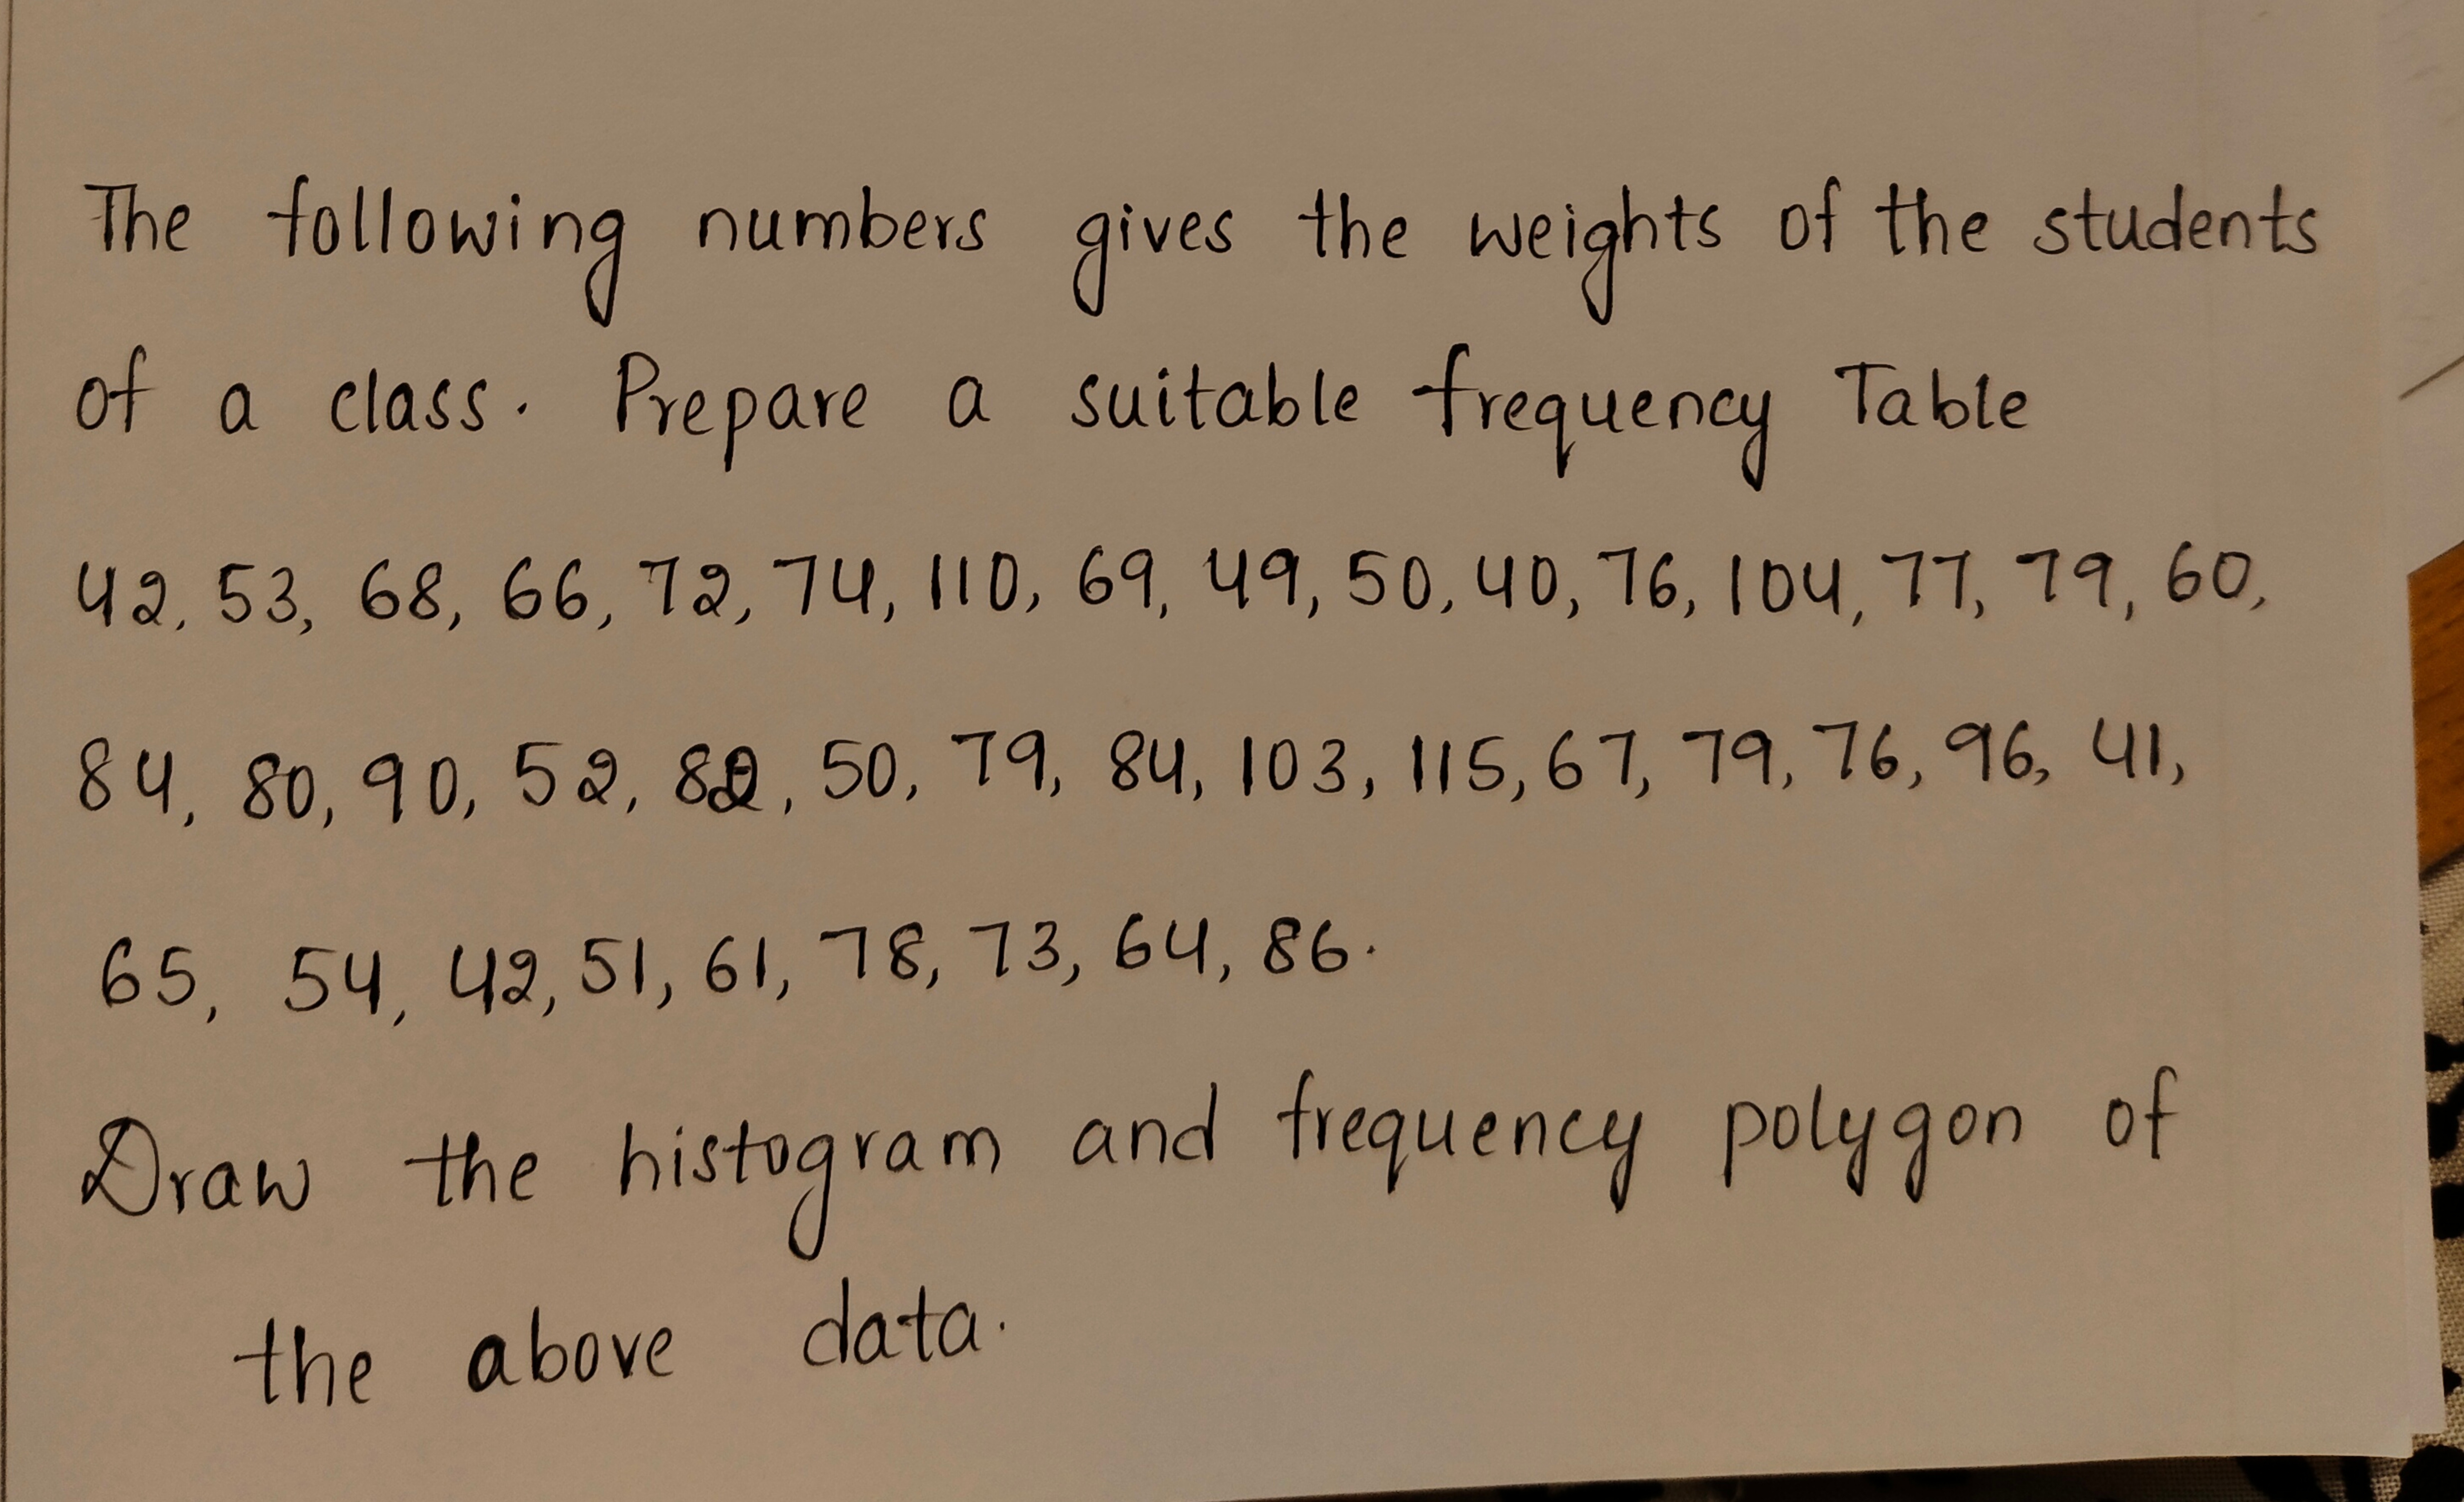 The following numbers gives the weights of the students
of a class. Prepare a suitable frequency Table
42, 53, 68, 66, 72, 74, 110, 69, 49, 50, 40, 76, 104, 77, 79, 60,
84, 80, 90, 52, 82, 50, 79, 84, 103, 115, 67, 79, 76, 96, 41,
65, 54, 42, 51, 61, 78, 73, 64, 86.
Draw the histogram and frequency polygon of
the above data.